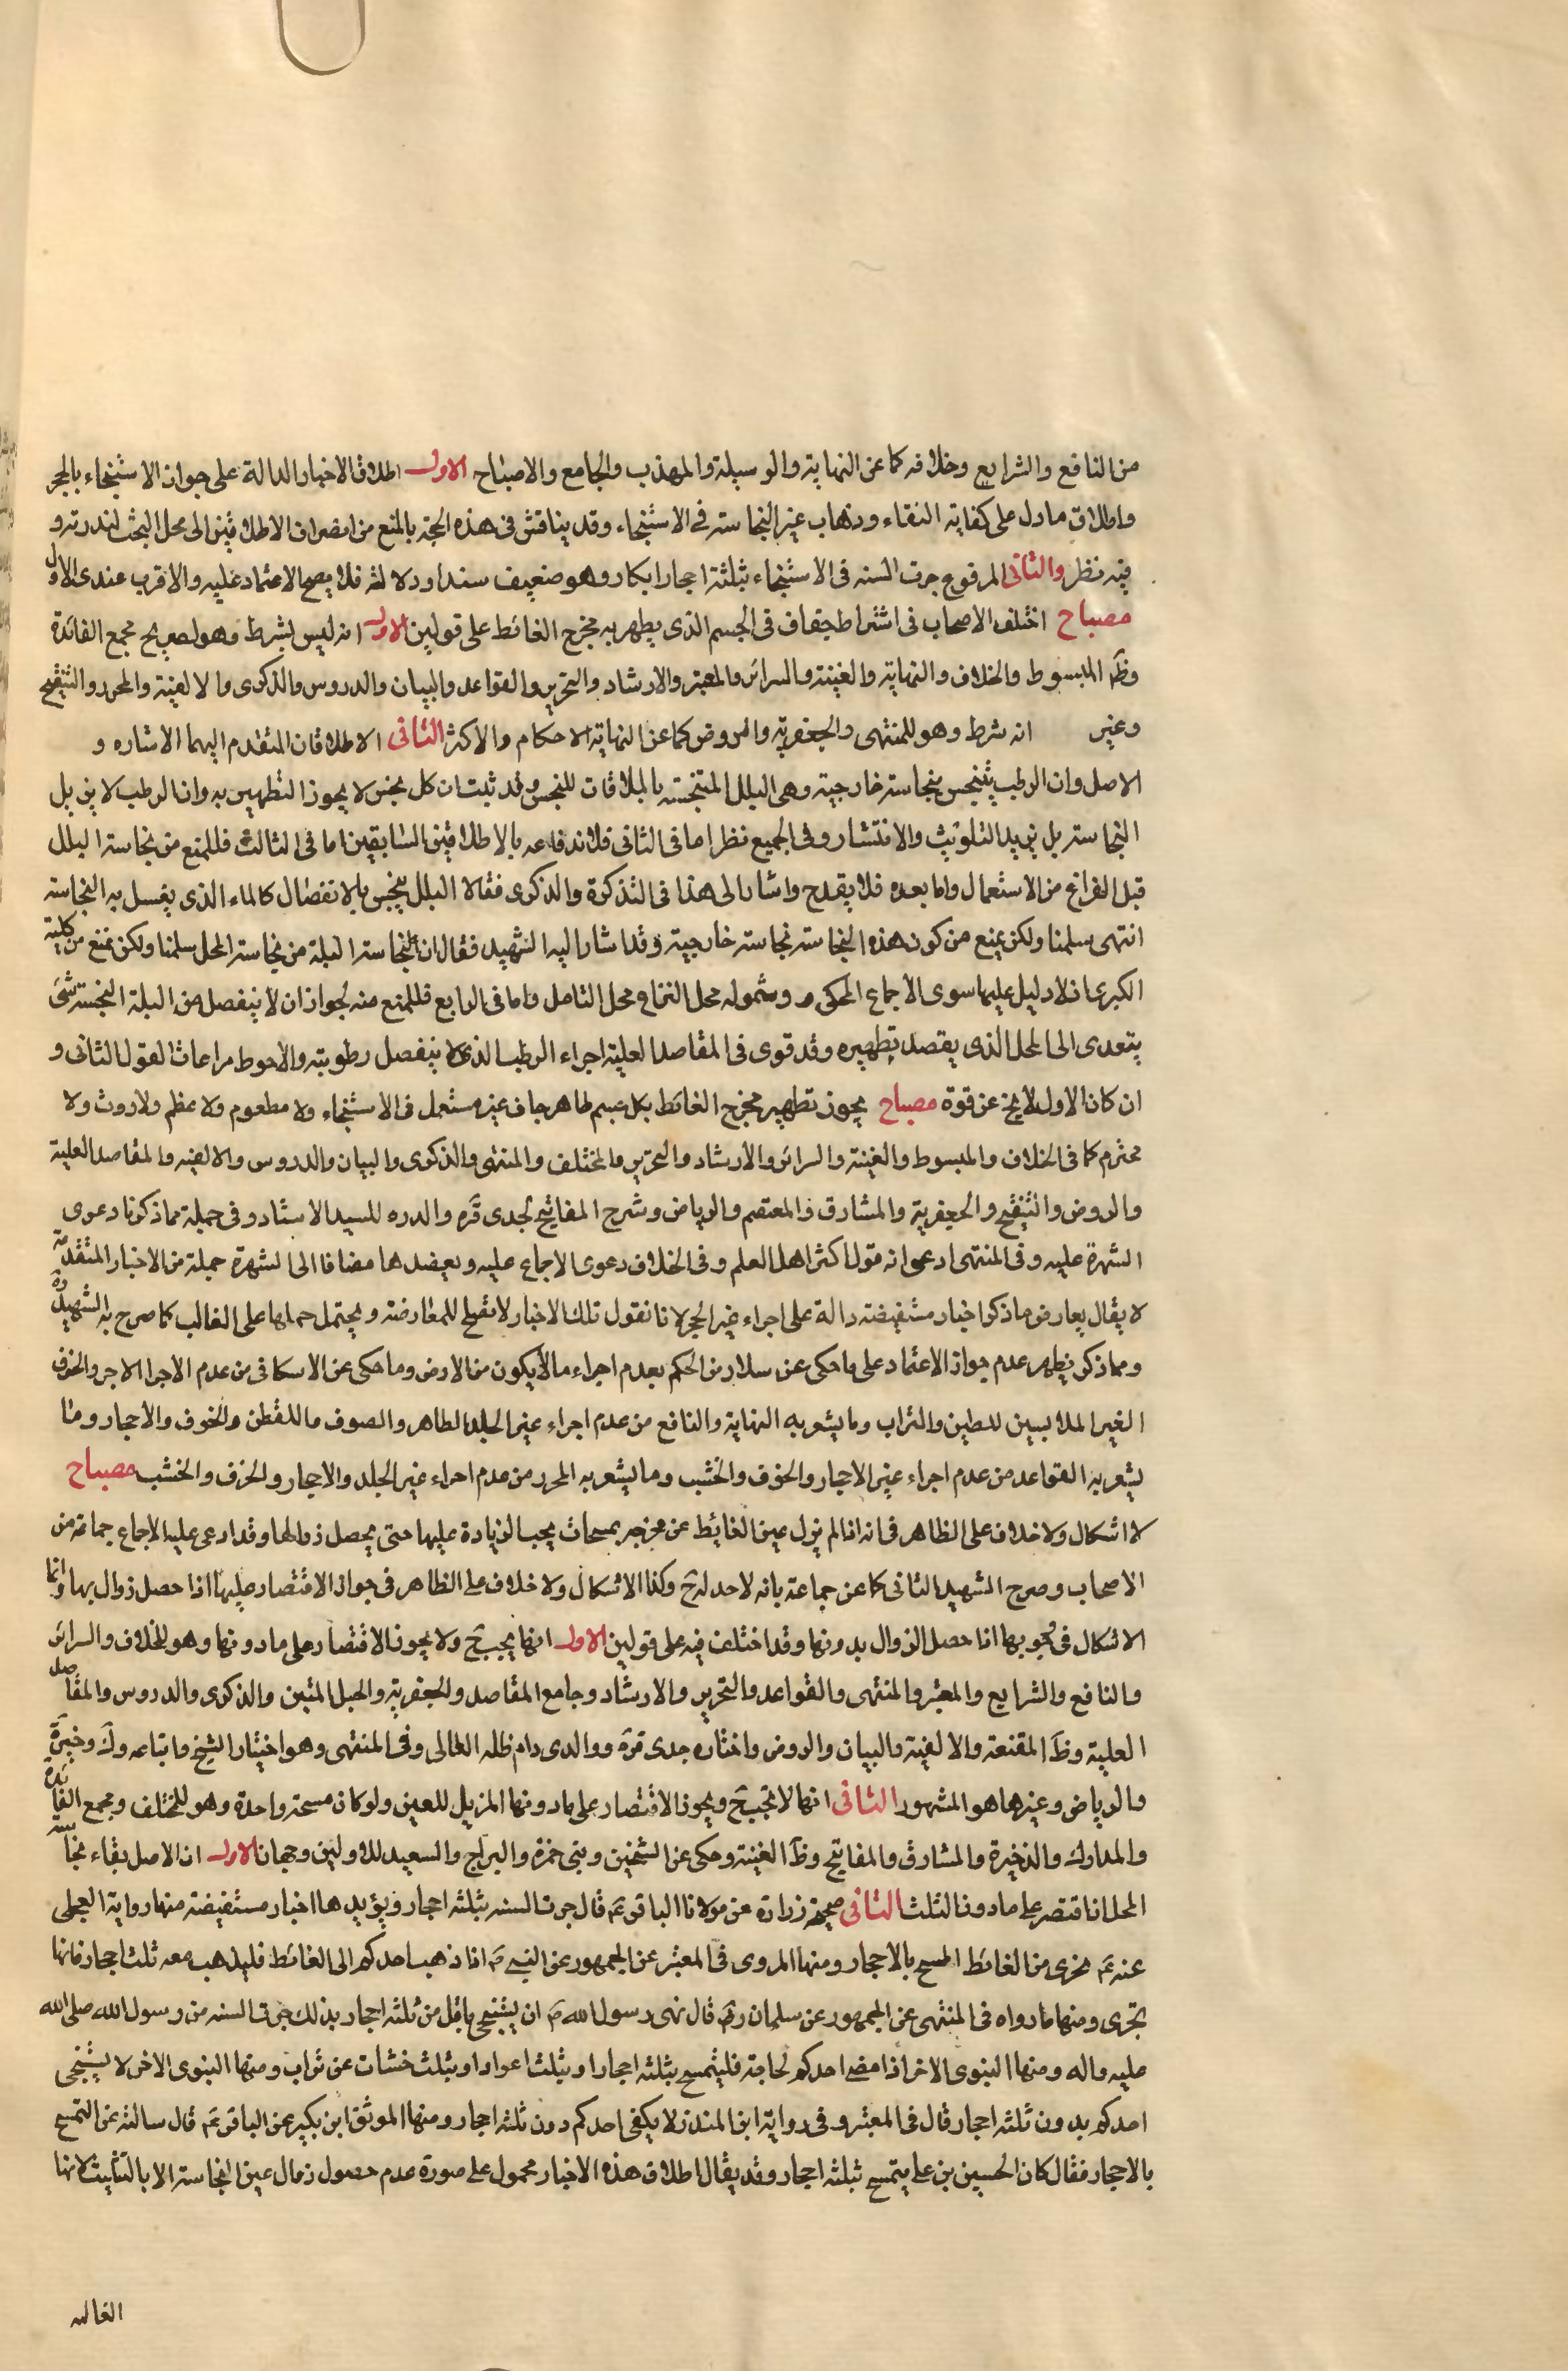 من النافع والشرايع وخلافه كما عن النهاية والوسيلة والمهذب والجامع والاصباح الاول اطلاق الاخبار الدالة على جواز الاستنجاء بالحجر
واطلاق مادل على كفاية النقاء وذهاب عين النجاسة في الاستنجاء وقد يناقش في هذه الحجة بالمنع من انصراف الاطلاقين الى محل البحث لندرته و
فيه نظر والثانى المرفوع جرت السنه فى الاستنجاء بثلثة احجار ابكار وهو ضعيف سندا ودلالة فلا يصح الاعتماد عليه والاقرب عندى الاول
مصباح اختلف الاصحاب فى اشتراط جفاف فى الجسم الذى يطهر به مخرج الغائط على قولين الاول انه ليس بشرط وهو لصريح مجمع الفائدة
وظَ المبسوط والخلاف والنهاية والغنية والسرائر والمعتبر والارشاد والتحرير والقواعد والبيان والدروس والذكرى والالفية والمحرر والتنقيح
وغير انه شرط وهو للمنتهى والجعفرية والروض كما عن النهاية الاحكام والاكثر الثانى الاطلاقان المتقدم اليهما الاشاره و
الاصل وان الرطب يتنجس بنجاسة خارجية وهى البلل المتنجسة بالملاقات للنجس وقد ثبت ان كل نجس لا يجوز التطهير به وان الرطب لا يزيل
النجاسة بل يزيد التلويث والانتشار وفى الجميع نظر اما فى الثانى فلاندفاعه بالاطلاقين السابقين اما فى الثالث فللمنع من نجاسة البلل
قبل الفراغ من الاستعمال واما بعده فلا يقدح واشار الى هذا فى التذكرة والذكرى فقالا البلل ينجس بالانفصال كالماء الذى يغسل به النجاسة
انتهى سلمنا ولكن يمنع من كون هذه النجاسة نجاسة خارجية وقد اشار اليه الشهيد فقال ان نجاسة البلة من نجاسة المحل سلمنا ولكن نمنع من كلية
الكبرى اذ لا دليل عليها سوى الاجماع المحكى وشموله محل النزاع محل التامل واما فى الرابع فللمنع منه لجواز ان لا ينفصل من البلة النجسة شئ
يتعدى الى المحل الذى يقصد تطهيره وقد قوى فى المقاصد العلية اجراء الرطب الذى لا ينفصل رطوبته والاحوط مراعات القول الثانى و
ان كان الاول لا يخ عن قوة مصباح يجوز تطهير مخرج الغائط بكل جسم طاهر جاف غير مستعمل فى الاستنجاء ولا مطعوم ولا عظم ولا روث ولا
محترم كما فى الخلاف والمبسوط والغنية والسرائر والارشاد والتحرير والمختلف والمنتهى والذكرى والبيان والدروس والالفيه والمقاصد العلية
والروض والتنقيح والجعفرية والمشارق والمعتصم والرياض وشرح المفاتيح لجدى قره والدره للسيد الاستاد وفى جملة مما ذكرنا دعوى
الشهرة عليه وفى المنتهى ادعى انه قول اكثر اهل العلم وفى الخلاف دعوى الاجماع عليه ويعضدها مضافا الى الشهرة جملة من الاخبار المتقدمة
لا يقال يعارض ما ذكر اخبار مستفيضة دالة على اجراء غير الحجر لانا نقول تلك الاخبار لا تصلح للمعارضة ويحتمل حملها على الغالب كما صرح به الشهيد ره
ومما ذكر يظهر عدم جواز الاعتماد على ما حكى عن سلار من الحكم بعدم اجراء ما لا يكون من الارض وما حكى عن الاسكافى من عدم الاجزا الاجر والخزف
الغير الملابسين للطين والتراب وما يشعر به النهاية والنافع من عدم اجراء غير الجلد الطاهر والصوف والقطن والخزف والاحجار وما
يشعر به القواعد من عدم اجراء غير الاحجار والخزف والخشب وما يشعر به المحرر من عدم اجراء غير الجلد والاحجار والخزف والخشب مصباح
لا اشكال ولا خلاف على الظاهر فى انه اذا لم يزل عين الغايط عن مخرجه بمسحات يجب الزيادة عليها حتى يحصل زوالها وقد ادعى عليه الاجماع جماعة من
الاصحاب وصرح الشهيد الثانى كما عن جماعة بانه لا حد له ح وكذا الاشكال ولا خلاف على الظاهر فى جواز الاقتصار عليها اذا حصل زوال بها وانما
الاشكال فى وجوبها اذا حصل الزوال بدونها وقد اختلف فيه على قولين الاول انها يجب ح ولا يجوز الاقتصار على ما دونها وهو للخلاف والسرائر
والنافع والشرايع والمعتبر والمنتهى والقواعد والتحرير والارشاد وجامع المقاصد والجعفرية والحبل المتين والذكرى والدروس والمقاصد
العلية وظَ المقنعة والالفية والبيان والروض واختاره جدى قره ووالدى دام ظله العالى وفى المنتهى وهو اختيار الشيخ واتباعه
والرياض وغيرها هو المشهور الثانى انها لا تجب ح ويجوز الاقتصار على ما دونها المزيل للعين ولو كان مسحة واحدة وهو للمختلف ومجمع الفائدة
والمدارك والذخيرة والمشارق والمفاتيح وظَ الغنية وحكى عن الشيخين وبنى حمزة والبراج والسعيد للاولين وجهان الاول ان الاصل بقاء نجاسة
المحل اذا اقتصر على ما دون الثلث الثانى صحيحة زرارة عن مولانا الباقر ع قال جرت السنه بثلثه احجار ويؤيدها اخبار مستفيضة منها رواية العجلى
عنه ع يجزى من الغائط المسح بالاحجار ومنها المروى فى المعتبر عن الجمهور عن النبى ص اذا ذهب احدكم الى الغائط فليذهب معه ثلث احجار فانها
تجزى ومنها ما رواه فى المنتهى عن الجمهور عن سلمان رض قال نهى رسول الله ص ان يستنجى باقل من ثلثه احجار بذلك جرت السنه من رسول الله صلى الله
عليه واله ومنها النبوى الاخر اذا مضى احدكم لحاجة فليتمسح بثلثه احجار او بثلث اعواد او بثلث خشات عن تراب ومنها النبوى الاخر لا يستنجى
احدكم بدون ثلثه احجار قال فى المعتبر وفى رواية ابن المنذر لا يكفى احدكم دون ثلثه احجار ومنها الموثق ابن بكير عن الباقر ع قال سالته عن التمسح
بالاحجار فقال كان الحسين بن على يتمسح بثلثه احجار وقد يقال اطلاق هذه الاخبار محمول على صورة عدم حصول زوال عين النجاسة الا بالتثليث لانها
الغالب